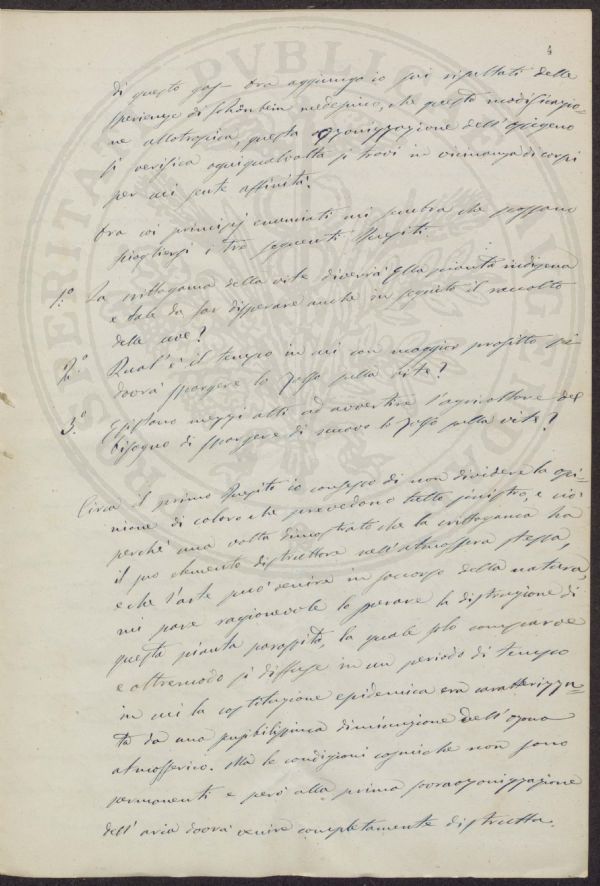 4
di questo gas. Ora aggiungo io sui risultati delle
sperienze di Schönbein medesimo, che questa modificazio-
ne allotropica, questa ozonizzazione dell'ossigeno
si verifica ogniqualvolta si trovi in vicinanza di corpi
per cui sente affinità.
Ora coi principj enunciati mi sembra che possano
sciogliersi i tre seguenti Quesiti.
1.o La crittogama della vite diverrà Ella pianta indigena
e tale da far disperare anche in seguito il raccolto
delle uve?
2.o Qual'è il tempo in cui con maggior profitto si
dovrà spargere lo zolfo sulla vite?
3.o Esistono mezzi atti ad avvertire l'agricoltore del
bisogno di spargere di nuovo lo zolfo sulla vite?
Circa il primo Quesito io confesso di non dividere la opi-
nione di coloro che prevedono tutto sinistro, e ciò
perchè una volta dimostrato che la crittogama ha
il suo elemento distruttore nell'atmosfera stessa,
e che l'arte può venire in soccorso della natura,
mi pare ragionevole lo sperare la distruzione di
questa pianta parassita, la quale solo comparve
e oltremodo si diffuse in un periodo di tempo
in cui la costituzione epidemica era caratterizza-
ta da una sensibilissima diminuzione dell'ozono
atmosferico. Ma le condizioni cosmiche non sono
permanenti e però alla prima sovraozonizzazione
dell'aria dovrà venire completamente distrutta.
PVBLICAE